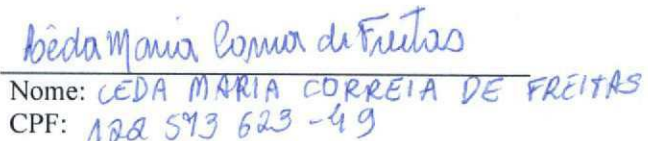 Lêda Maria Correia de Freitas
Nome: LEDA MARIA CORREIA DE FREITAS
CPF: 122 573 623 -49